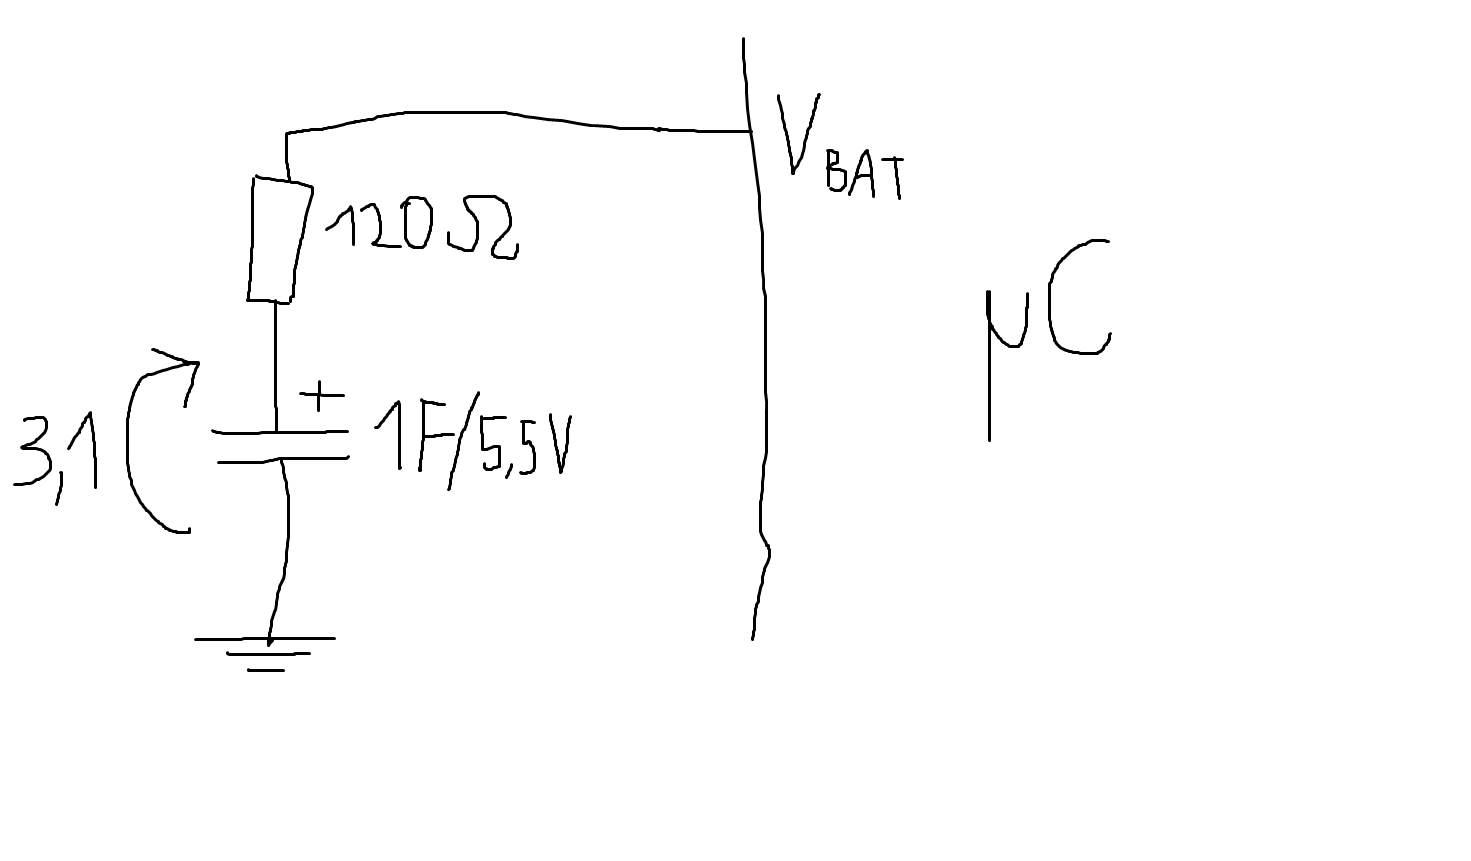 V_BAT
120Ω
μC
+
3,1
1F/5,5V